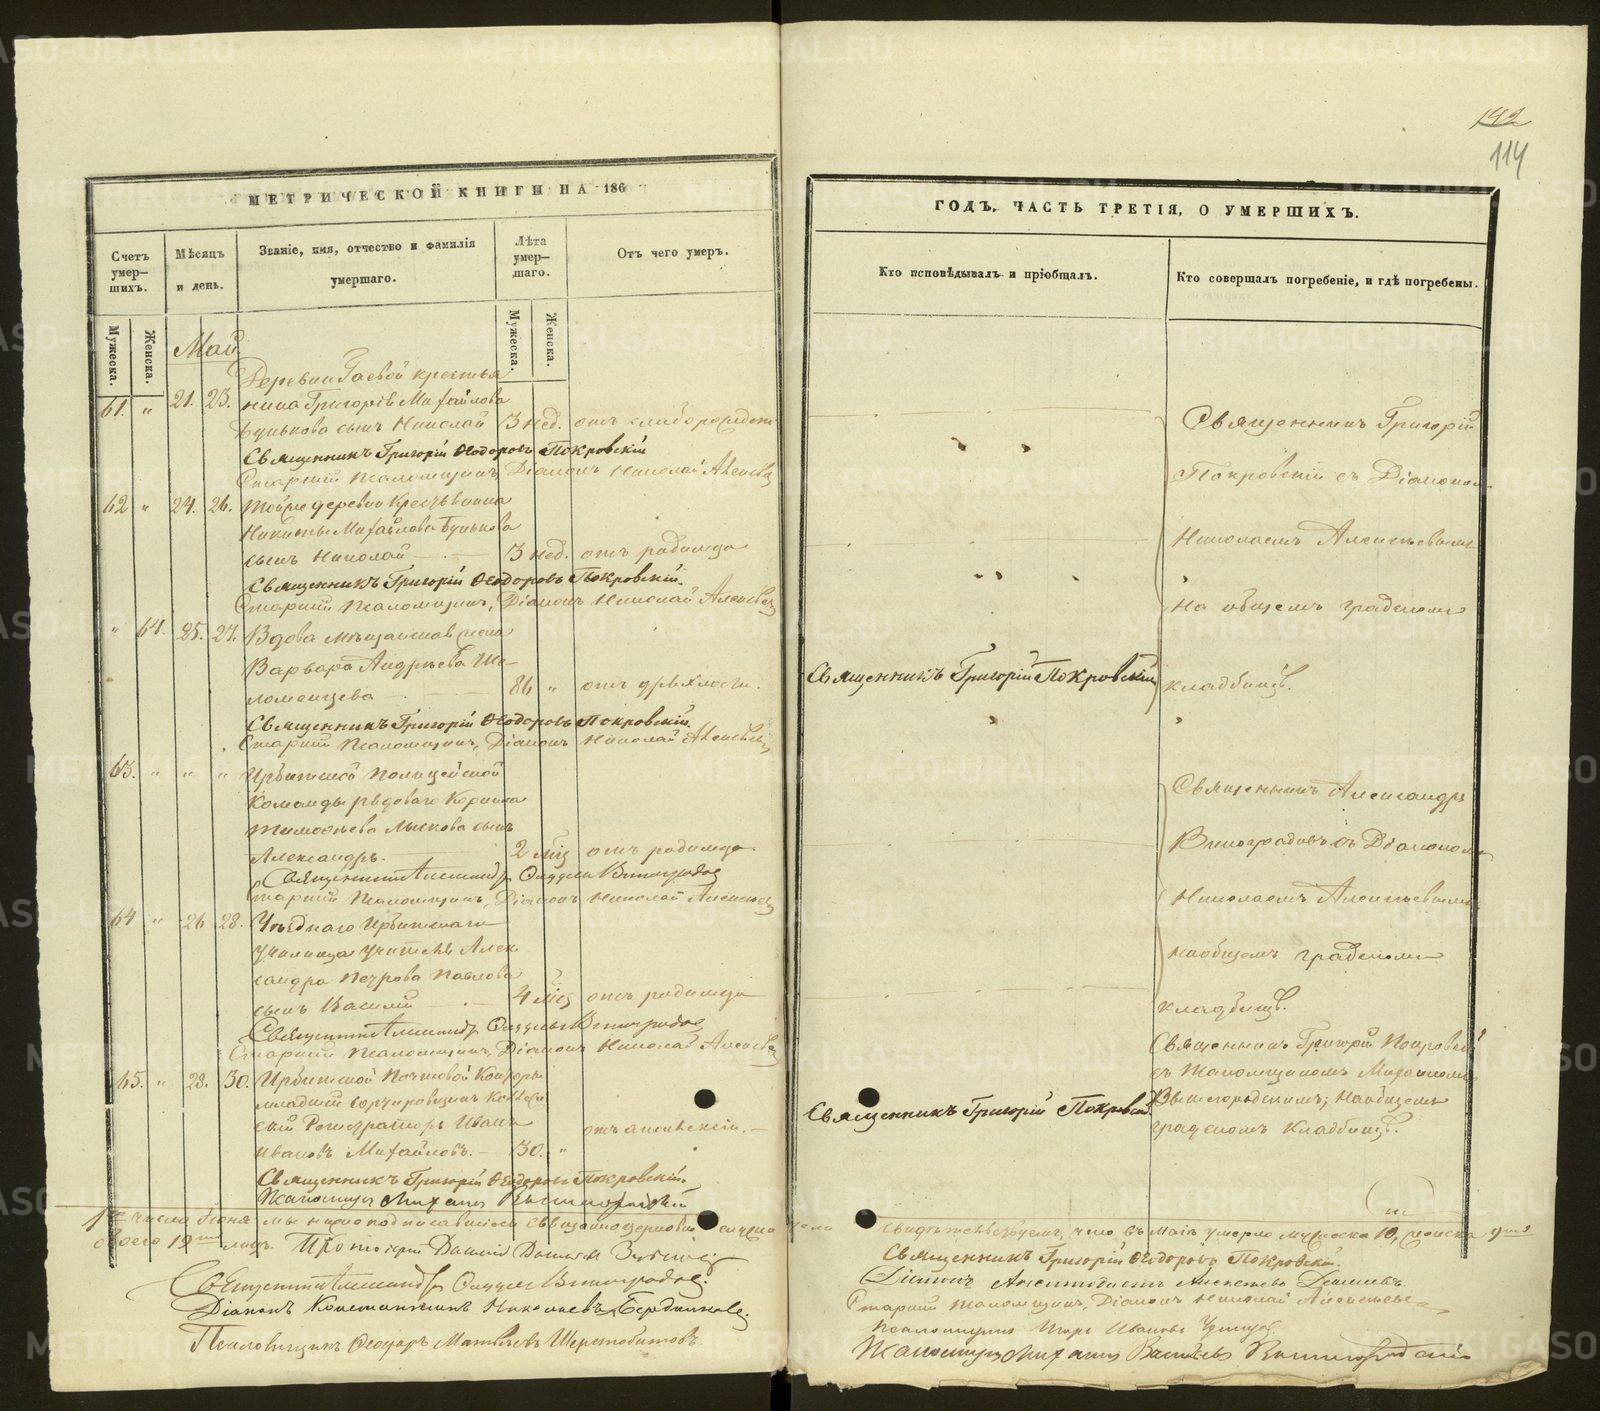 142
114
МЕТРИЧЕСКОЙ КНИГИ НА 186
Счетъ умер-шихъ.
Мѣсяцъ и день.
Званіе, имя, отчество и фамилія умершаго.
Лѣта умер-шаго.
Отъ чего умеръ.
Мужеска.
Женска.
Мужеска.
Женска.
Май
Деревни Гаевой крестья
61. " 21. 23. нина Григорія Михайлова
Бунькова сынъ Николай 3 нед. отъ слаборожден
Священникъ Григорій Ѳеодоровъ Покровскій
Старшій Псаломщикъ, Діаконъ Николай Алексѣев
62 " 24. 26. Тойже деревни Крестьянина
Никиты Михайлова Бунькова
сынъ Николай 3 нед. отъ родимца
Священникъ Григорій Ѳеодоровъ Покровскій.
Старшій Псаломщикъ, Діаконъ Николай Алексѣев
" 64. 25. 27. Вдова мѣщанская жена
Варвара Андрѣева Ше-
ломенцева 86 " отъ дряхлости.
Священникъ Григорій Ѳеодоровъ Покровскій.
Старшій Псаломщикъ, Діаконъ Николай Алексѣев
63. " " " Ирбитской Полицейской
Команды рядоваго Корнила
Тимофѣева Лыскова сынъ
Александръ. 2 мѣс отъ родимца.
Священникъ Александръ Виноградов
Старшій Псаломщикъ, Діаконъ Николай Алексѣев
64 " 26 28. Уѣзднаго Ирбитскаго
училища учителя Алек
сандра Петрова Павлова
сынъ Василій 4 мѣс отъ родимца
Священникъ Александръ Виноградов
Старшій Псаломщикъ, Діаконъ Николай Алексѣев
65. " 28. 30. Ирбитской Почтовой Конторы
младшій сортировщикъ Коллеж
скій Регистраторъ Иванъ
Ивановъ Михайловъ. 30. " отъ апоплексіи.
Священникъ Григорій Ѳеодоровъ Покровскій.
Псаломщикъ Михаилъ Вышегородскій
1го числа Іюня мы нижеподписавшіеся
обоего 19ти лицъ. Протоіерей
Священникъ Александръ Виноградов.
Діаконъ Константинъ Николаевъ Бердниковъ.
Псаломщикъ Ѳеодоръ Матвѣевъ Шерстобитовъ
ГОДЪ, ЧАСТЬ ТРЕТІЯ, О УМЕРШИХЪ.
Кто исповѣдывалъ и пріобщалъ.
Кто совершалъ погребеніе, и гдѣ погребены.
Священникъ Григорій
Покровскій съ Діакономъ
Николаемъ Алексѣевымъ
на общемъ градскомъ
Священникъ Григорій Покровскій
кладбищѣ.
Священникъ Александръ
Виноградовъ съ Діакономъ
Николаемъ Алексѣевымъ
на общемъ градскомъ
кладбищѣ.
Священникъ Григорій Покровскій
съ Псаломщикомъ Михаиломъ
Священникъ Григорій Покровскій
Вышегородскимъ; на общемъ
градскомъ кладбищѣ.
свидѣтельствуемъ, что въ маѣ умерло мужеска 10, женска 9ть
Священникъ Григорій Ѳеодоровъ Покровскій.
Діаконъ
Старшій Псаломщикъ, Діаконъ Николай Алексѣевъ
Псаломщикъ
Псаломщикъ Михаилъ Васильевъ Вышегородскій
METRIKI.GASO-URAL.RU